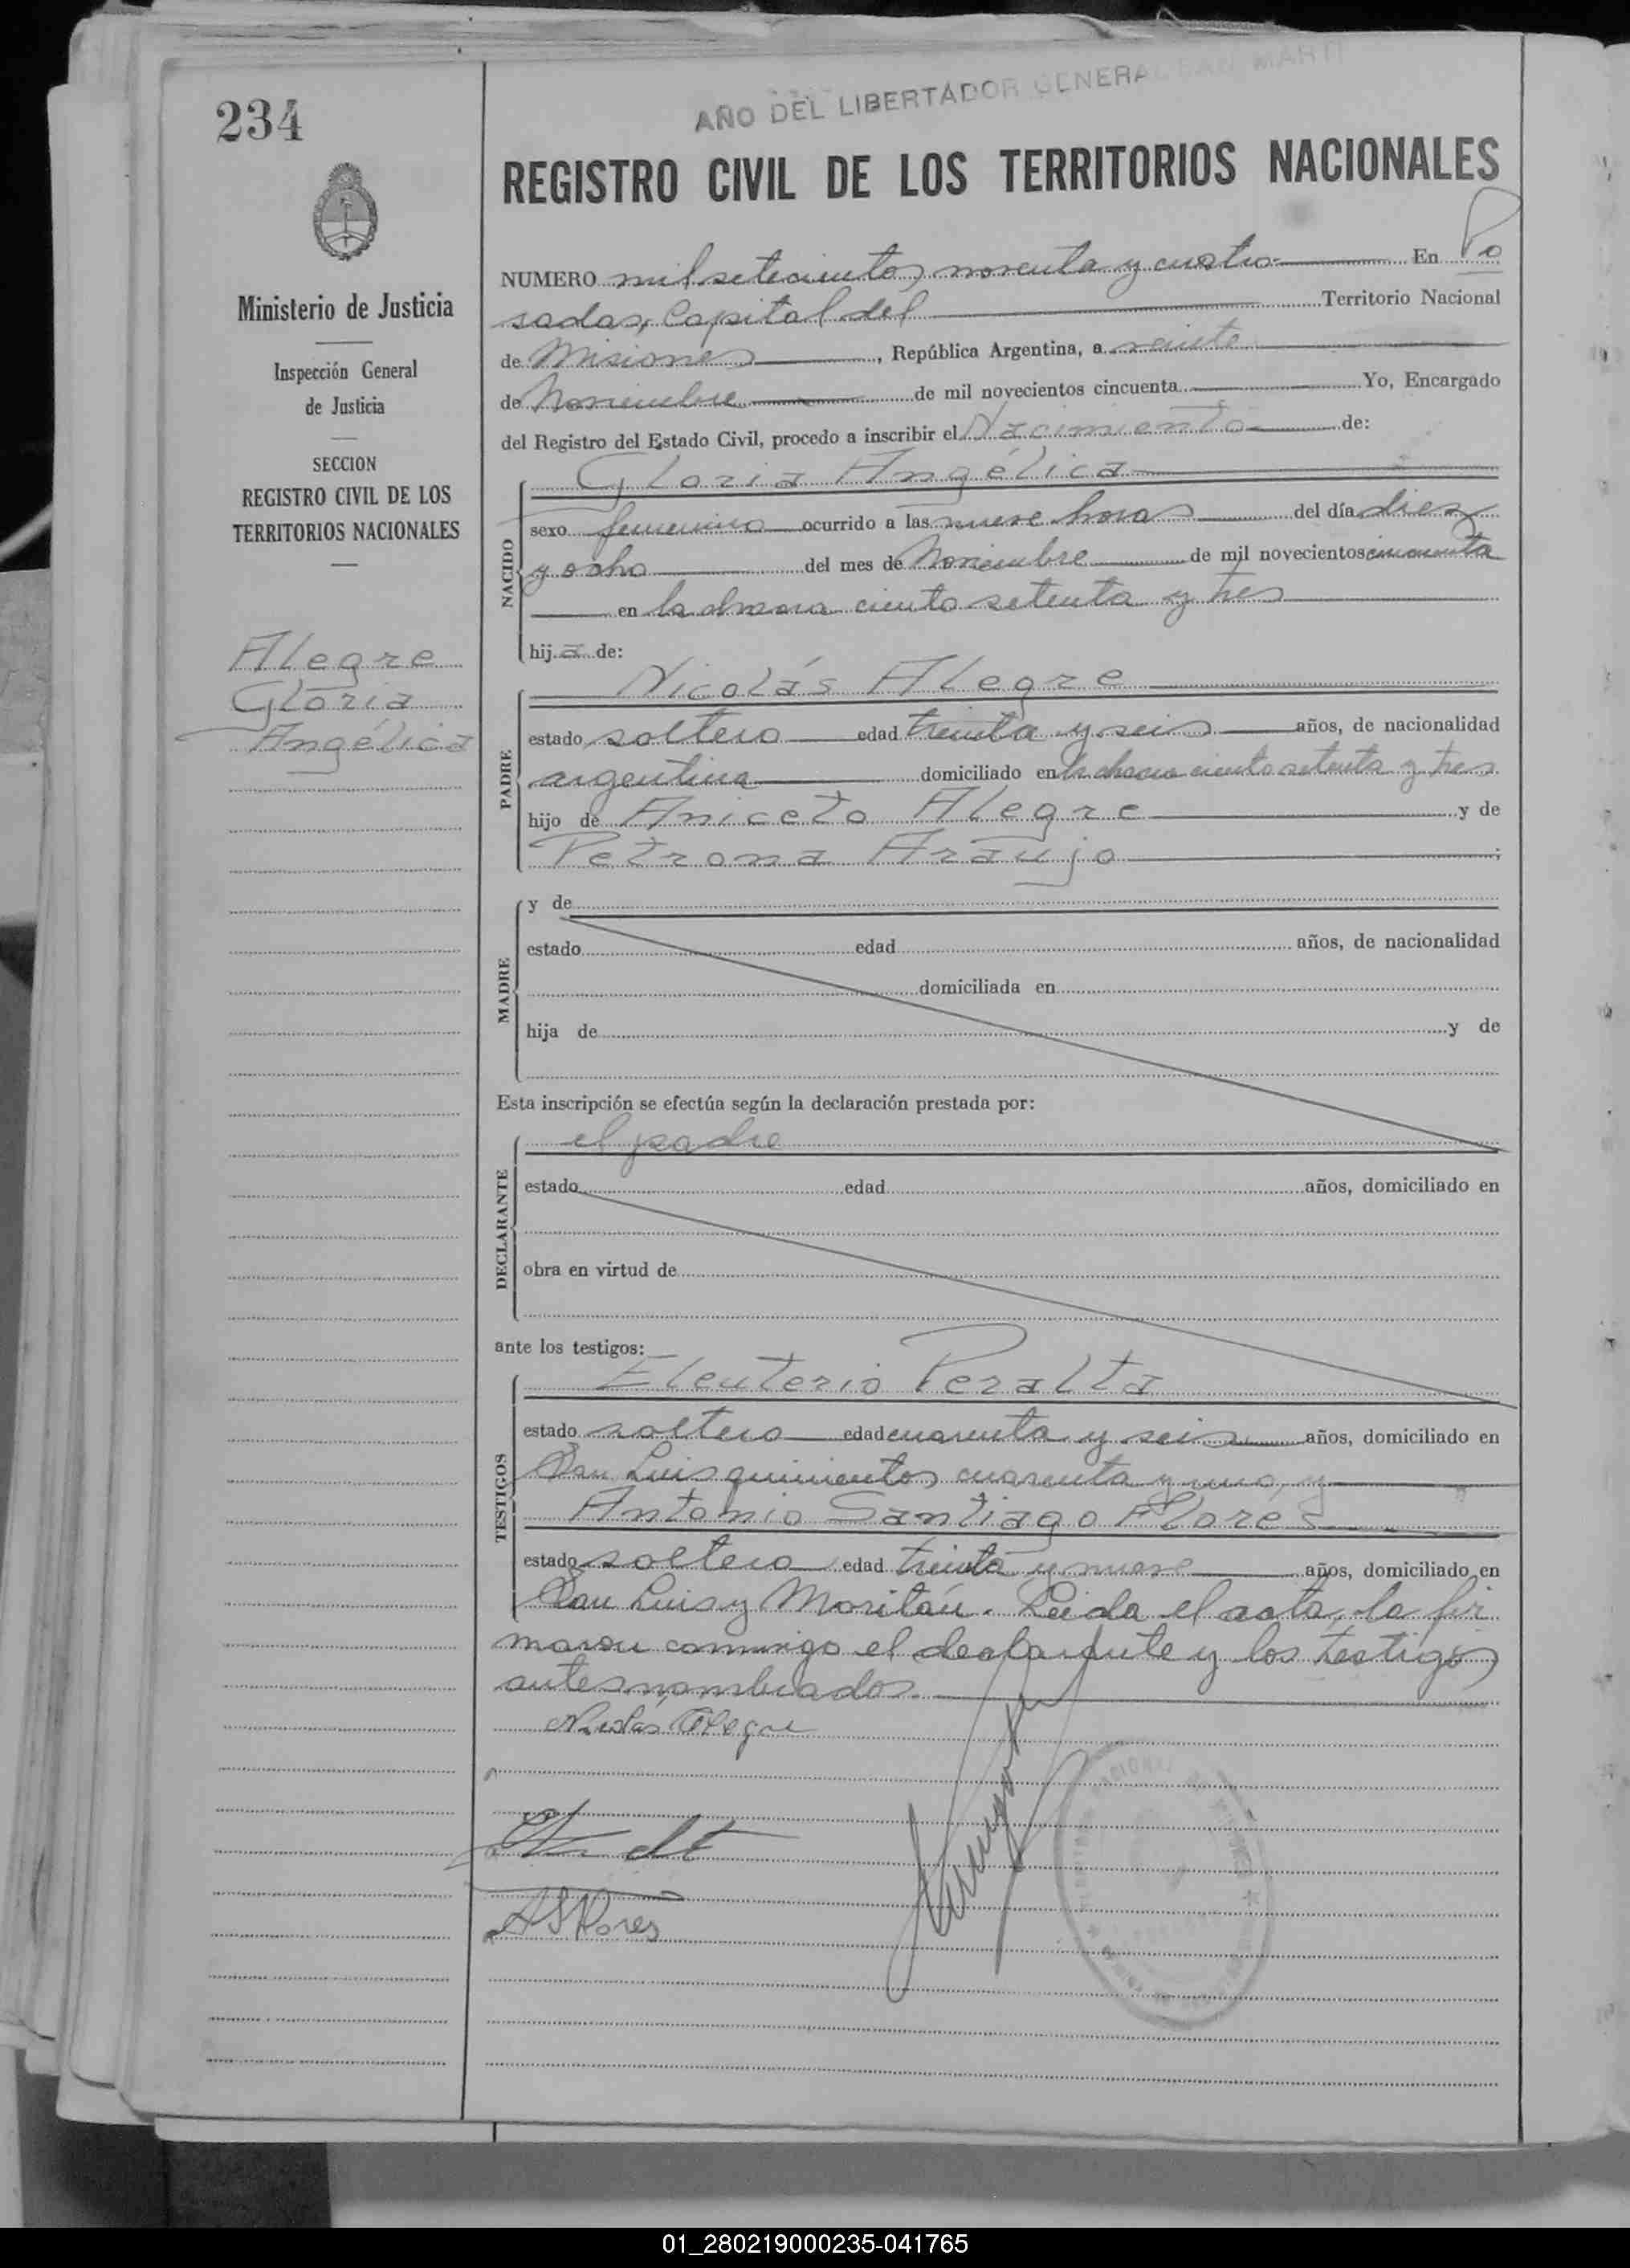 234
AÑO DEL LIBERTADOR GENERAL SAN MARTI
REGISTRO CIVIL DE LOS TERRITORIOS NACIONALES
Ministerio de Justicia
Inspección General
de Justicia
SECCION
REGISTRO CIVIL DE LOS
TERRITORIOS NACIONALES
Alegre
Gloria
Angélica
NUMERO mil setecientos noventa y cuatro En Po
sadas, Capital del Territorio Nacional
de Misiones, República Argentina, a veinte
de Noviembre de mil novecientos cincuenta Yo, Encargado
del Registro del Estado Civil, procedo a inscribir el Nacimiento de:
NACIDO
Gloria Angélica
sexo femenino ocurrido a las nueve horas del día diez
y ocho del mes de Noviembre de mil novecientos cincuenta
en la chacra ciento setenta y tres
hija de:
PADRE
Nicolás Alegre
estado soltero edad treinta y seis años, de nacionalidad
argentina domiciliado en la chacra ciento setenta y tres
hijo de Aniceto Alegre y de
Petrona Araujo;
MADRE
y de
estado edad años, de nacionalidad
domiciliada en
hija de y de
Esta inscripción se efectúa según la declaración prestada por:
DECLARANTE
el padre
estado edad años, domiciliado en
obra en virtud de
ante los testigos:
TESTIGOS
Eleuterio Peralta
estado soltero edad cuarenta y seis años, domiciliado en
San Luis quinientos cuarenta y uno, y
Antonio Santiago Flores
estado soltero edad treinta y nueve años, domiciliado en
San Luis y Moritán. Leida el acta, la fir
maron conmigo el declarante y los testigos
antes nombrados.
Nicolas Alegre
A S Flores
01_280219000235-041765